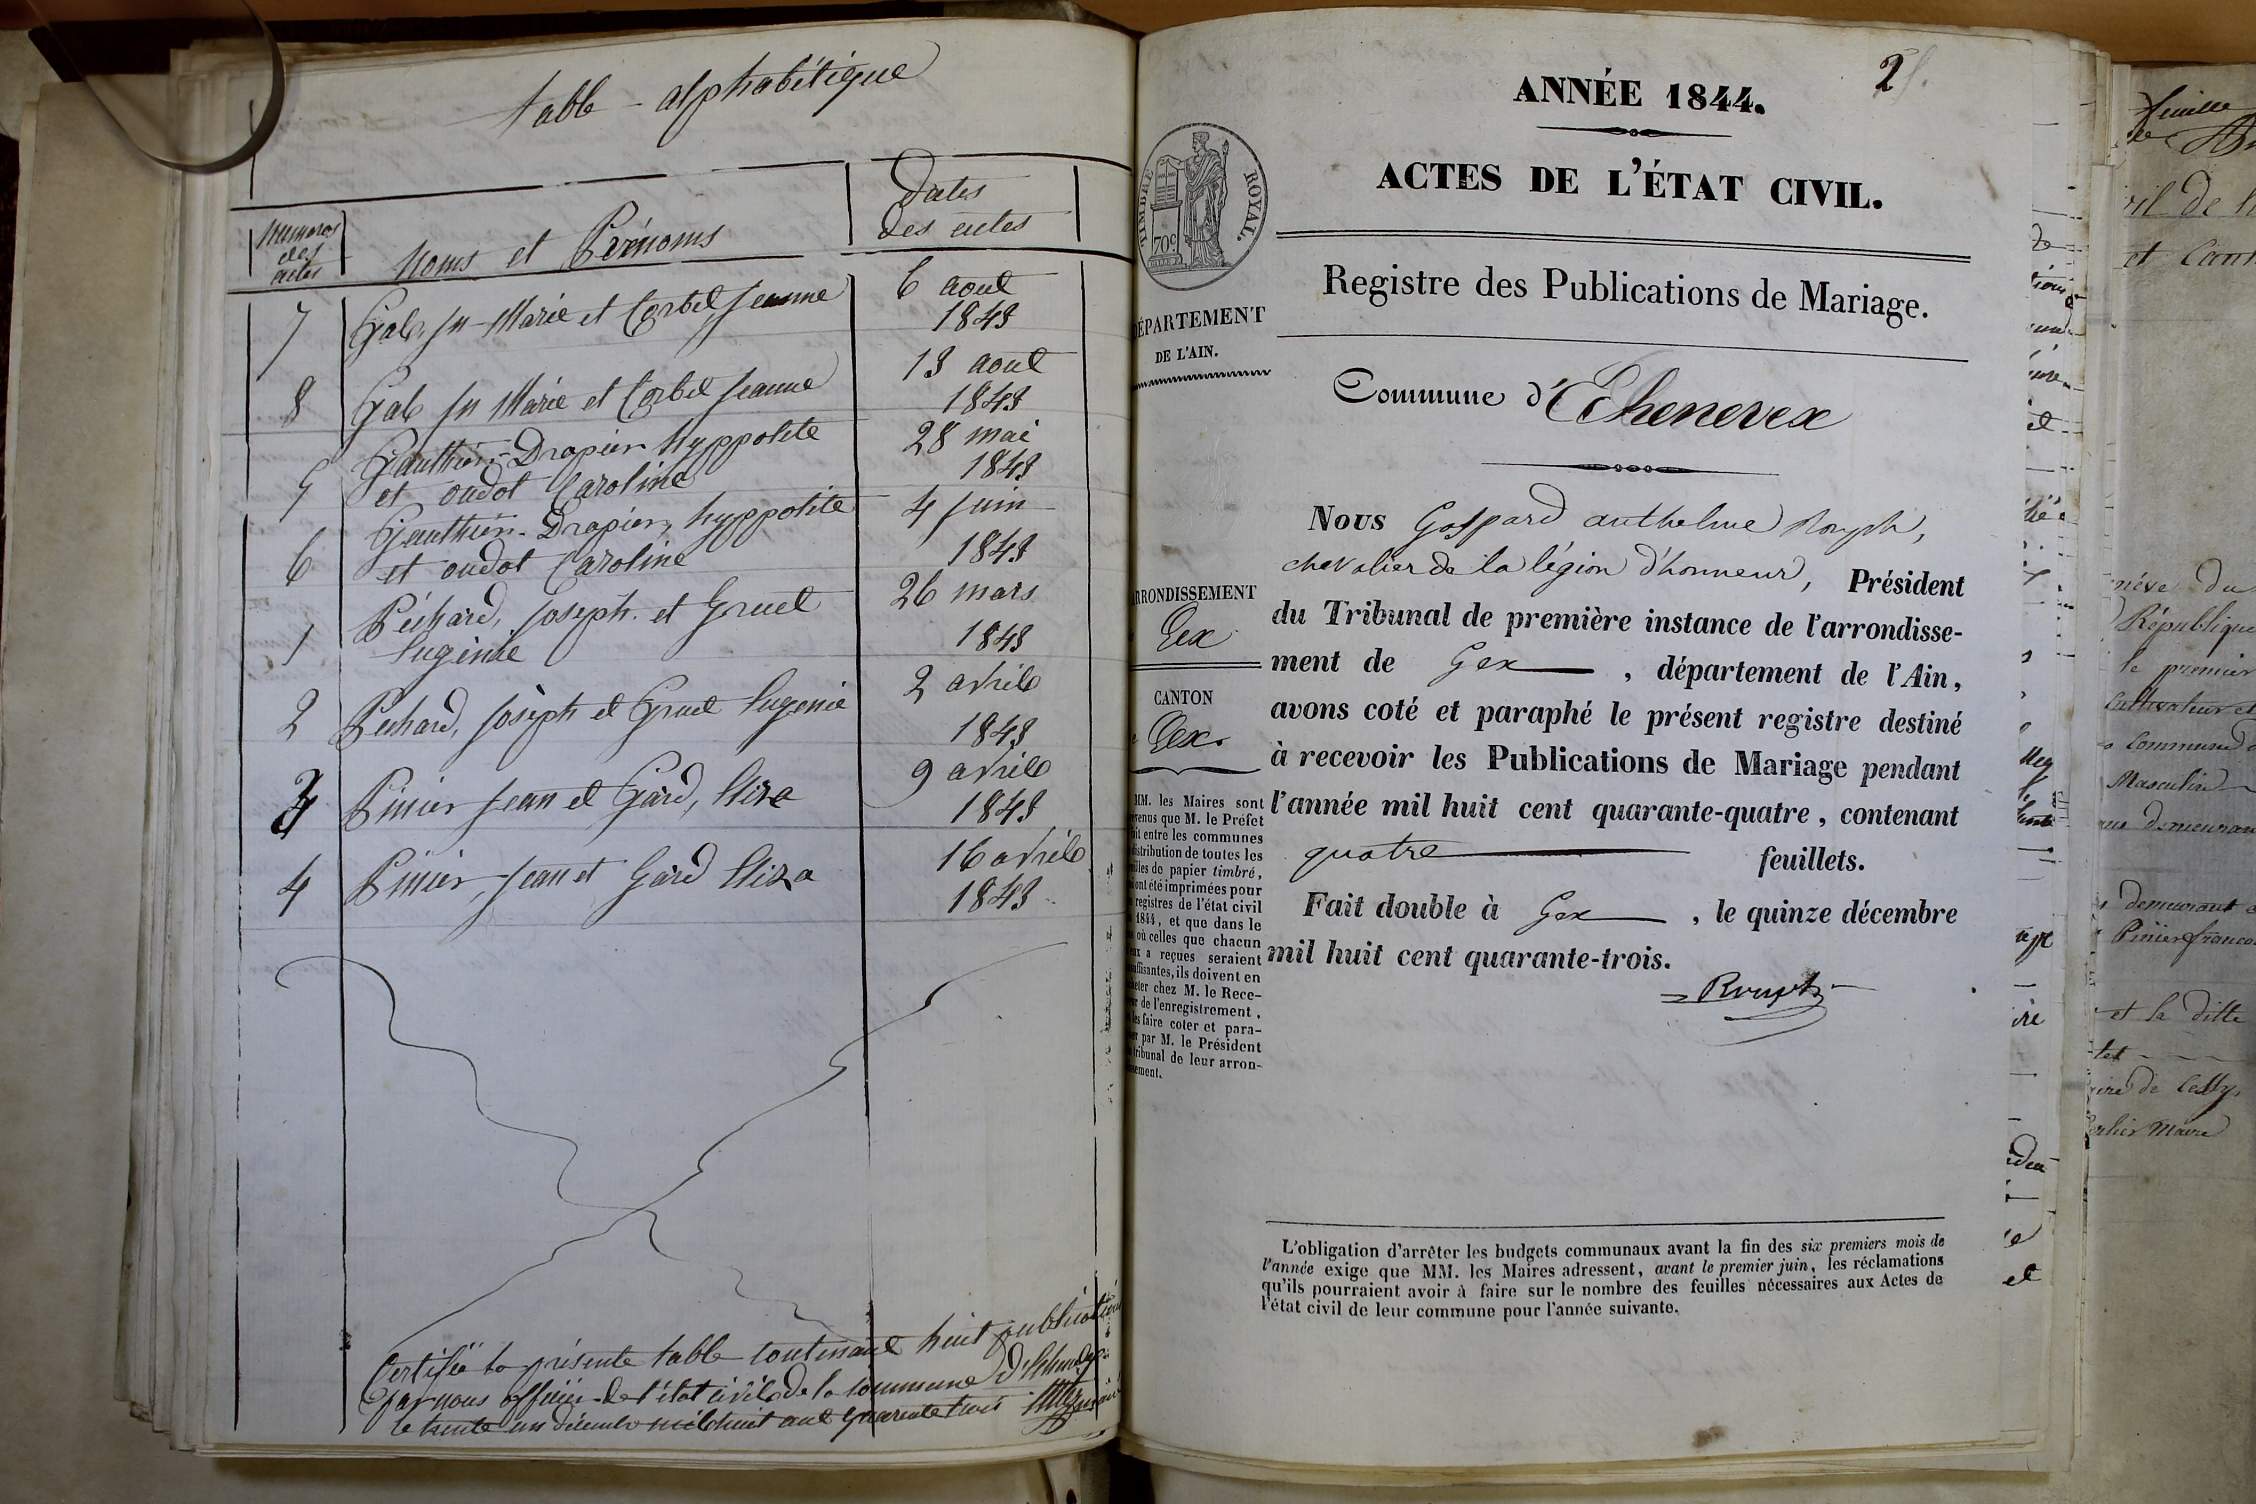 table - alphabétique
Numéros
des
actes
Noms et Prénoms
Dates
des actes
7
Gab, Jn - Marie et Corbet Jeanne
6 aout
1843
8
Gab Jn Marie et Corbet Jeanne
13 aout
1843
5
Gauthier - Drapier hyppolite
et oudot Caroline
28 mai
1843
6
Gauthier - Drapier, hyppolite
et oudot Caroline
4 juin
1843
1
Péchard, Joseph. et Gruet
Eugénie
26 mars
1843
2
Péchard, Joseph et Gruet Eugenie
2 avril
1843
3
Pinier Jean et Gard, Eliza
9 avril
1843
4
Pinier, Jean et Gard Eliza
16 avril
1843
Certifié la présente table contenant huit publications
par nous officier de l'état civil de la commune d'Echenevex
le trente un décembre mil huit cent quarante trois
2
ANNÉE 1844.
ACTES DE L'ÉTAT CIVIL.
TIMBRE ROYAL.
70 c
Registre des Publications de Mariage.
DÉPARTEMENT
DE L'AIN.
Commune d'Echenevex
ARRONDISSEMENT
Gex
CANTON
Gex.
MM. les Maires sont
que M. le Préfet
entre les communes
distribution de toutes les
de papier timbré,
ont été imprimées pour
registres de l'état civil
1844, et que dans le
où celles que chacun
a reçues seraient
ils doivent en
chez M. le Rece-
de l'enregistrement,
les faire coter et para-
par M. le Président
tribunal de leur arron-
Nous Gaspard anthelme Rouph,
chevalier de la légion d'honneur, Président
du Tribunal de première instance de l'arrondisse-
ment de Gex , département de l'Ain,
avons coté et paraphé le présent registre destiné
à recevoir les Publications de Mariage pendant
l'année mil huit cent quarante-quatre , contenant
quatre feuillets.
Fait double à Gex , le quinze décembre
mil huit cent quarante-trois.
L'obligation d'arrêter les budgets communaux avant la fin des six premiers mois de
l'année exige que MM. les Maires adressent, avant le premier juin, les réclamations
qu'ils pourraient avoir à faire sur le nombre des feuilles nécessaires aux Actes de
l'état civil de leur commune pour l'année suivante.
feuille
de
et
du
République
le premier
Cultivateur et
Commune
Masculin
demeurant
Pinier
et la ditte
de Cessy,
Maire